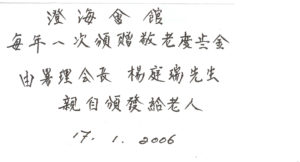 澄海會館
每年一次頒贈敬老度歲金
由署理会長 楊庭瑞先生
親自頒發給老人
17. 1. 2006